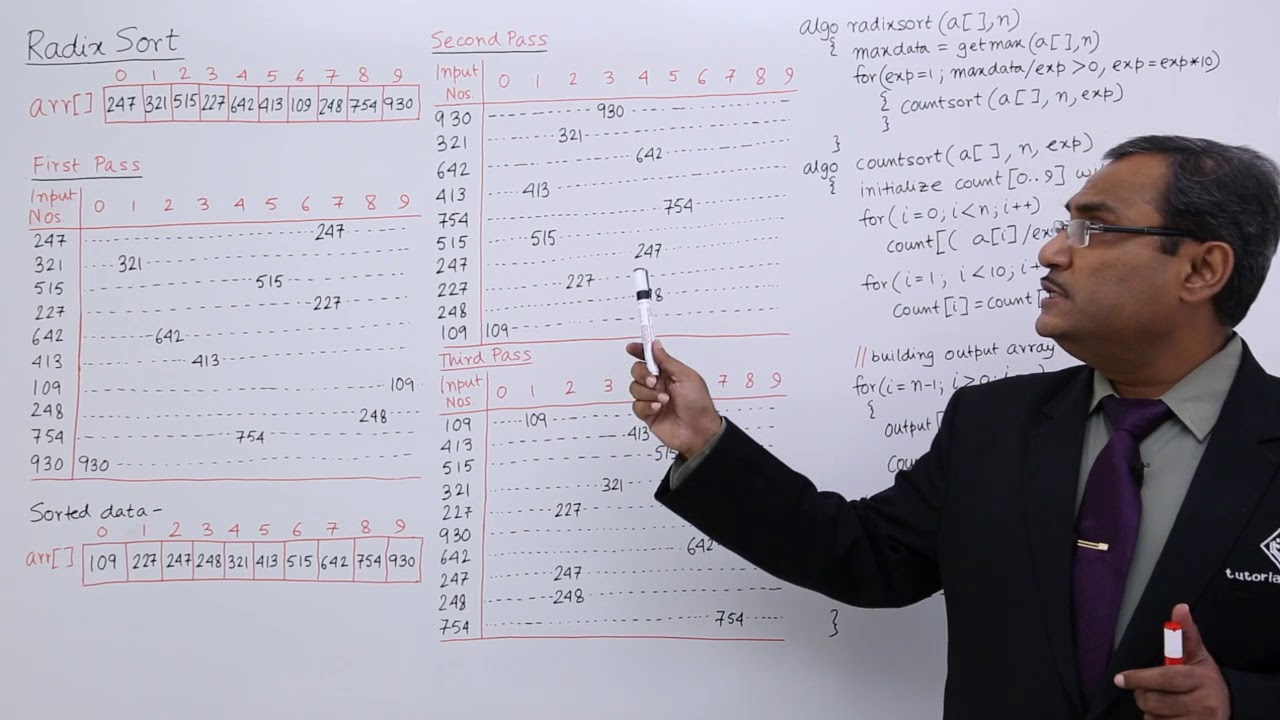 Radix Sort
0 1 2 3 4 5 6 7 8 9
arr[] 247 321 515 227 642 413 109 248 754 930
First Pass
Input Nos. 0 1 2 3 4 5 6 7 8 9
247 247
321 321
515 515
227 227
642 642
413 413
109 109
248 248
754 754
930 930
Sorted data-
0 1 2 3 4 5 6 7 8 9
arr[] 109 227 247 248 321 413 515 642 754 930
Second Pass
Input Nos. 0 1 2 3 4 5 6 7 8 9
930 930
321 321
642 642
413 413
754 754
515 515
247 247
227 227
248 8
109 109
Third Pass
Input Nos. 0 1 2 3 7 8 9
109 109
413 413
515 515
321 321
227 227
930
642 642
247 247
248 248
754 754
algo radixsort (a[],n)
{ maxdata = getmax(a[],n)
for(exp=1; maxdata/exp >0, exp=exp*10)
{ countsort (a[], n, exp)
}
}
algo countsort (a[], n, exp)
{ initialize count[0..9]
for(i=0; i<n; i++)
count[( a[i]/
for(i=1; i<10;
count[i]=count
//building output array
for(i=n-1;
{
output
}